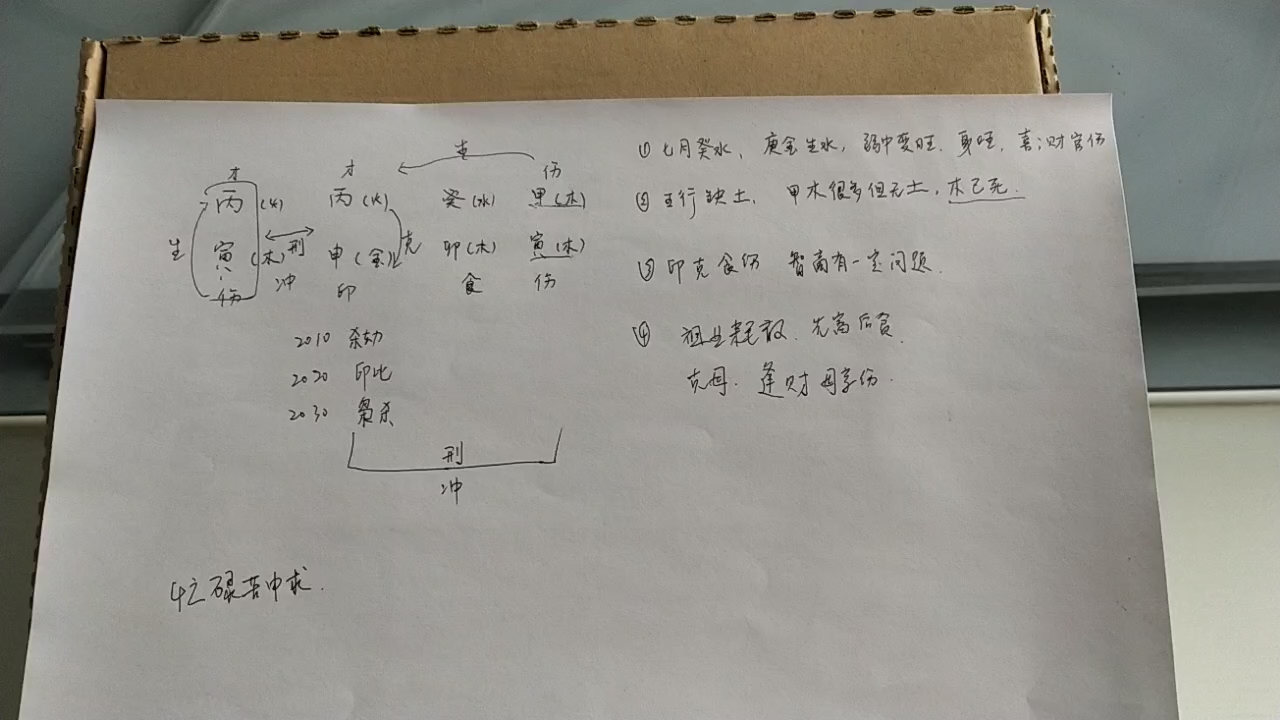 生
才 才 伤
丙(火) 丙(火) 癸(水) 甲(木)
生 刑 克
寅(木) 申(金) 卯(木) 寅(木)
伤 冲 印 食 伤
2010 杀劫
2020 印比
2030 枭杀
刑
冲
碌苦中求.
① 七月癸水, 庚金生水, 弱中变旺. 身旺, 喜:财官伤
② 五行缺土, 甲木很多但无土, 木已死.
③ 印克食伤 智商有一定问题.
④ 祖业耗散. 先富后贫.
克母. 逢财母字伤.